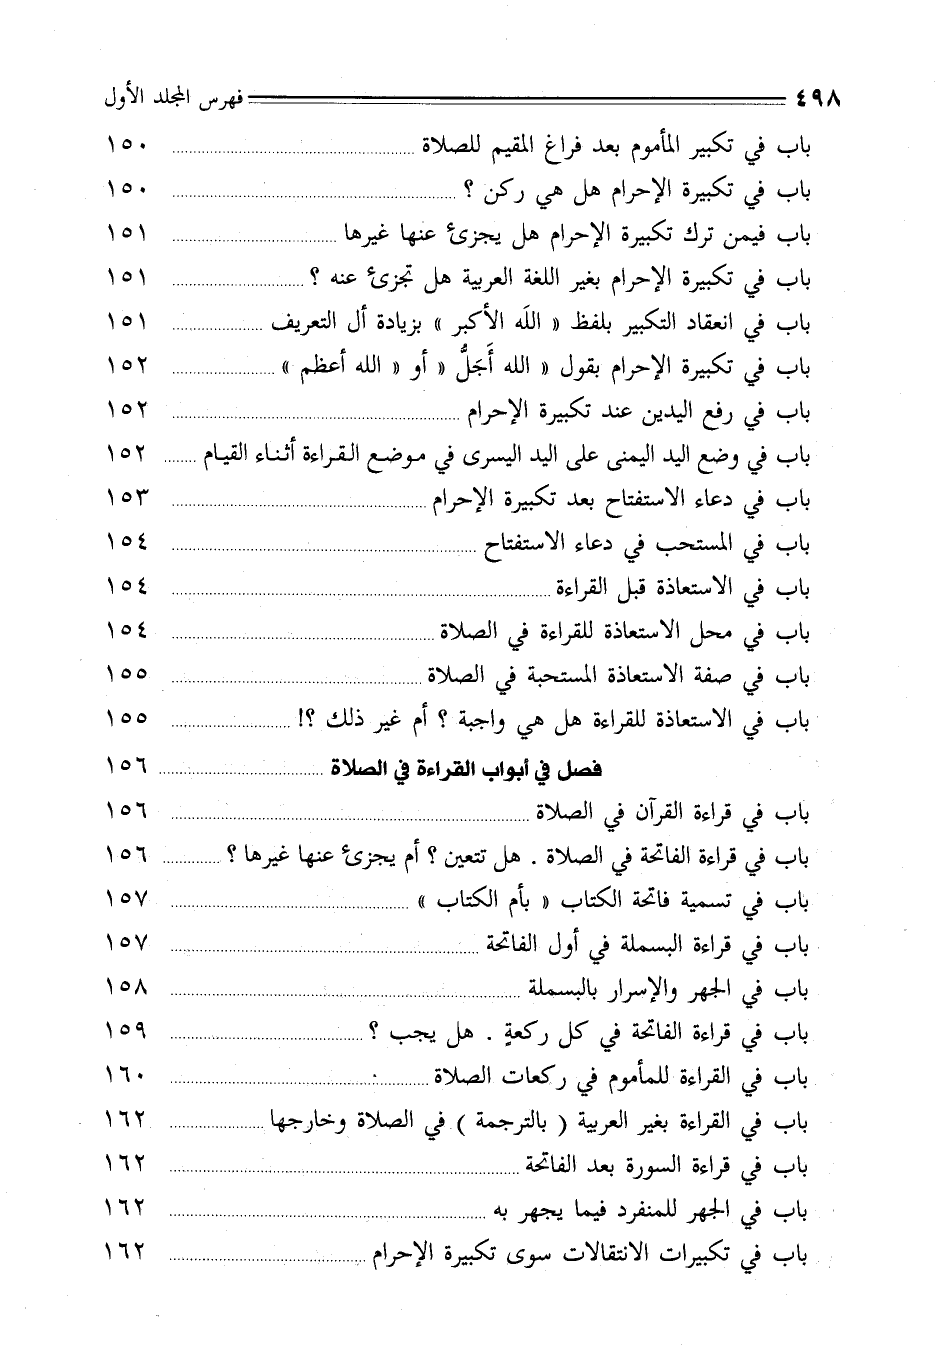 ٤٩٨ فهرس المجلد الأول
باب في تكبير المأموم بعد فراغ المقيم للصلاة ١٥٠
باب في تكبيرة الإحرام هل هي ركن ؟ ١٥٠
باب فيمن ترك تكبيرة الإحرام هل يجزئ عنها غيرها ١٥١
باب في تكبيرة الإحرام بغير اللغة العربية هل تجزئ عنه ؟ ١٥١
باب في انعقاد التكبير بلفظ « اللَه الأكبر » بزيادة أل التعريف ١٥١
باب في تكبيرة الإحرام بقول « الله أَجَلُّ « أو « الله أعظم » ١٥٢
باب في رفع اليدين عند تكبيرة الإحرام ١٥٢
باب في وضع اليد اليمنى على اليد اليسرى في موضع القراءة أثناء القيام ١٥٢
باب في دعاء الاستفتاح بعد تكبيرة الإحرام ١٥٣
باب في المستحب في دعاء الاستفتاح ١٥٤
باب في الاستعاذة قبل القراءة ١٥٤
باب في محل الاستعاذة للقراءة في الصلاة ١٥٤
باب في صفة الاستعاذة المستحبة في الصلاة ١٥٥
باب في الاستعاذة للقراءة هل هي واجبة ؟ أم غير ذلك ؟! ١٥٥
فصل في أبواب القراءة في الصلاة ١٥٦
باب في قراءة القرآن في الصلاة ١٥٦
باب في قراءة الفاتحة في الصلاة . هل تتعين ؟ أم يجزئ عنها غيرها ؟ ١٥٦
باب في تسمية فاتحة الكتاب « بأم الكتاب » ١٥٧
باب في قراءة البسملة في أول الفاتحة ١٥٧
باب في الجهر والإسرار بالبسملة ١٥٨
باب في قراءة الفاتحة في كل ركعةٍ . هل يجب ؟ ١٥٩
باب في القراءة للمأموم في ركعات الصلاة ١٦٠
باب في القراءة بغير العربية ( بالترجمة ) في الصلاة وخارجها ١٦٢
باب في قراءة السورة بعد الفاتحة ١٦٢
باب في الجهر للمنفرد فيما يجهر به ١٦٢
باب في تكبيرات الانتقالات سوى تكبيرة الإحرام ١٦٢